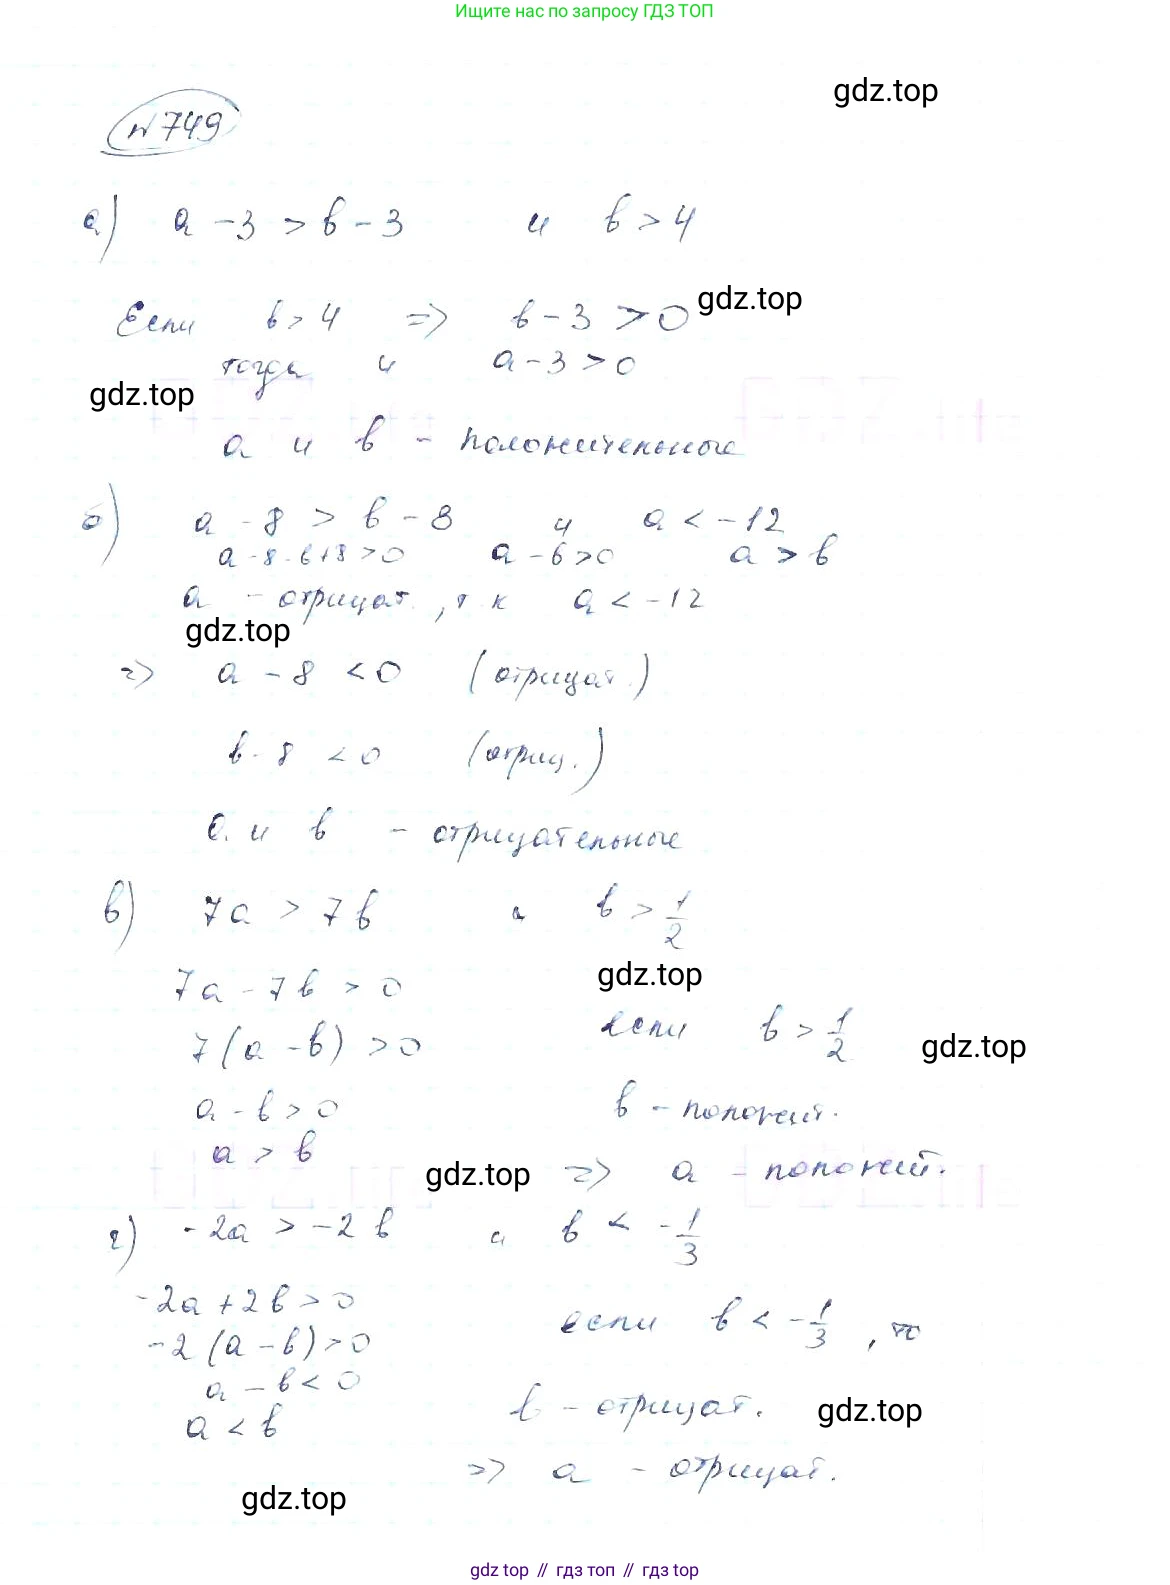 Ищите нас по запросу ГДЗ ТОП
gdz.top
№749
а) a - 3 > b - 3 и b > 4
Если b > 4 => b - 3 > 0 gdz.top
тогда и a - 3 > 0
gdz.top
a и b - положительные
б) a - 8 > b - 8 и a < -12
a - 8 - b + 8 > 0 a - b > 0 a > b
a - отрицат., т.к a < -12
gdz.top
=> a - 8 < 0 (отрицат.)
b - 8 < 0 (отриц.)
a и b - отрицательные
в) 7a > 7b и b > 1/2
gdz.top
7a - 7b > 0
если b > 1/2 gdz.top
7(a - b) > 0
a - b > 0 b - положит.
a > b gdz.top => a - положит.
г) -2a > -2b и b < -1/3
-2a + 2b > 0
если b < -1/3, то
-2(a - b) > 0
a - b < 0
b - отрицат. gdz.top
a < b
=> a - отрицат.
gdz.top
gdz top // гдз топ // гдз top